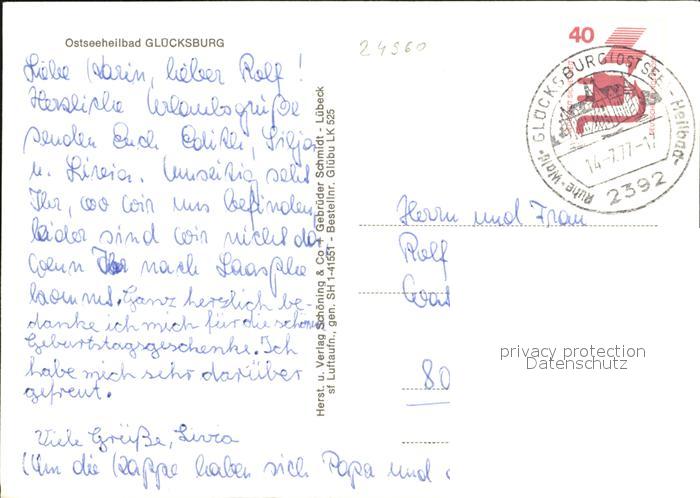 Ostseeheilbad GLÜCKSBURG
24960
40
Liebe Karin, lieber Rolf!
Herzliche Urlaubsgrüße
senden Euch Edith, Silja
u. Livia. Umseitig seht
Ihr, wo wir uns befinden,
leider sind wir nicht da
wenn Ihr nach Laasphe
kommt. Ganz herzlich be-
danke ich mich für die schönen
Geburtstagsgeschenke. Ich
habe mich sehr darüber
gefreut.
Viele Grüße, Livia
Um die Kappe haben sich Papa und
Herst. u. Verlag Schöning & Co + Gebrüder Schmidt - Lübeck
sf Luftaufn., gen. SH 1-41551 - Bestellnr. Glübu LK 525
GLÜCKSBURG (OSTSEE) Heilbad
Ruhe Wald
14.-7.77-17
2392
Herrn und Frau
Rolf
80
privacy protection
Datenschutz